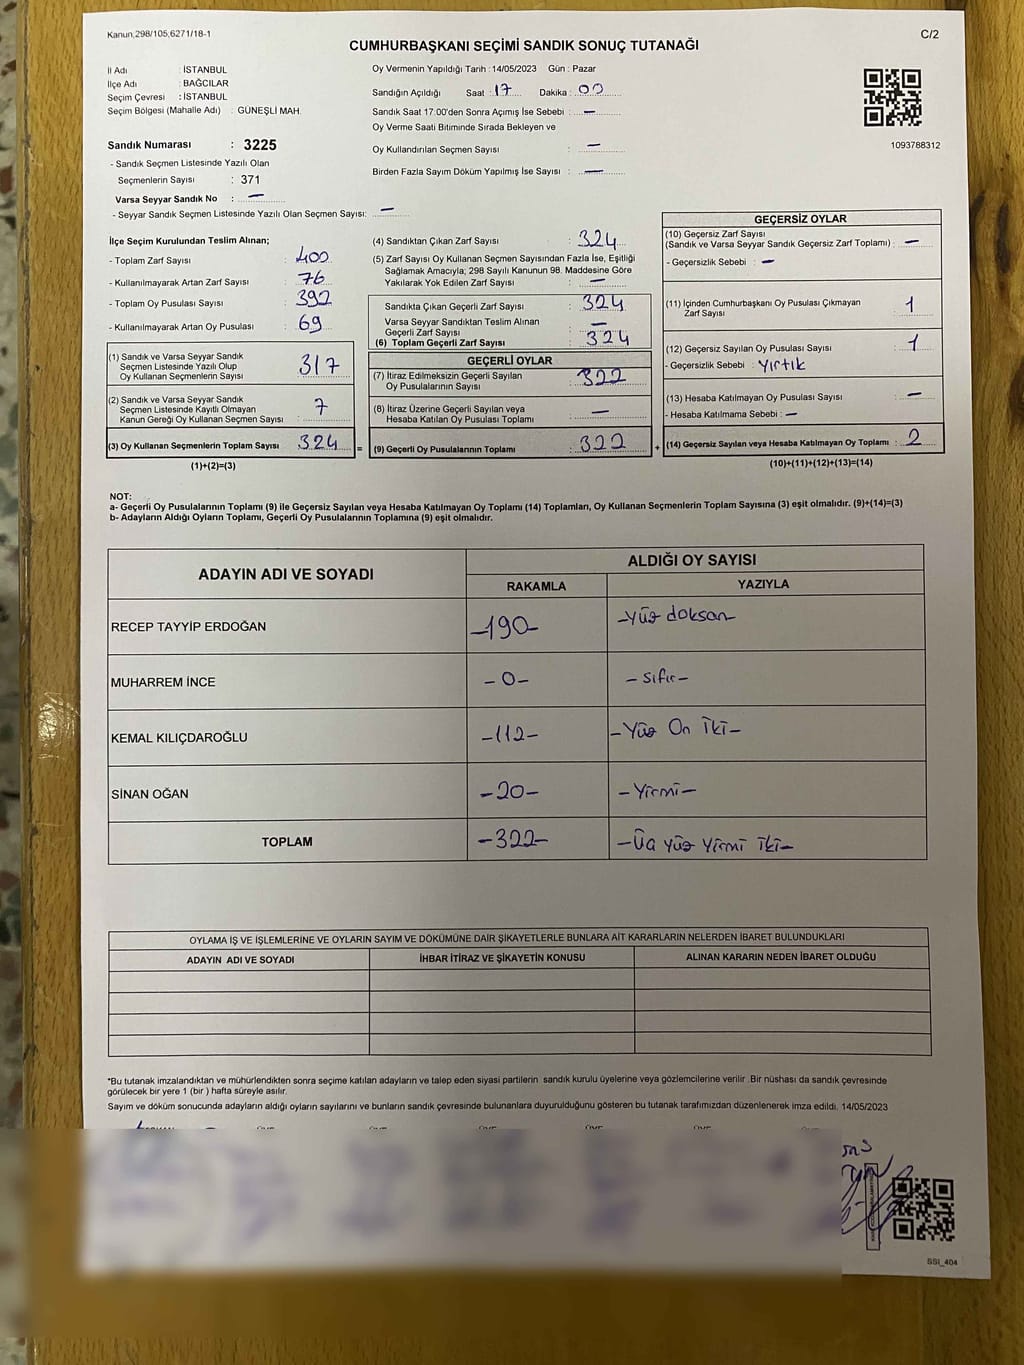 Kanun,298/105,6271/18-1
C/2
CUMHURBAŞKANI SEÇİMİ SANDIK SONUÇ TUTANAĞI
İl Adı : İSTANBUL
İlçe Adı : BAĞCILAR
Seçim Çevresi : İSTANBUL
Seçim Bölgesi (Mahalle Adı) : GÜNEŞLİ MAH.
Sandık Numarası : 3225
- Sandık Seçmen Listesinde Yazılı Olan
Seçmenlerin Sayısı : 371
Varsa Seyyar Sandık No : —
- Seyyar Sandık Seçmen Listesinde Yazılı Olan Seçmen Sayısı: —
Oy Vermenin Yapıldığı Tarih : 14/05/2023 Gün : Pazar
Sandığın Açıldığı Saat : 17 Dakika : 00
Sandık Saat 17:00'den Sonra Açımış İse Sebebi : —
Oy Verme Saati Bitiminde Sırada Bekleyen ve
Oy Kullandırılan Seçmen Sayısı : —
Birden Fazla Sayım Döküm Yapılmış İse Sayısı : —
1093788312
İlçe Seçim Kurulundan Teslim Alınan;
- Toplam Zarf Sayısı : 400
- Kullanılmayarak Artan Zarf Sayısı : 76
- Toplam Oy Pusulası Sayısı : 392
- Kullanılmayarak Artan Oy Pusulası : 69
(1) Sandık ve Varsa Seyyar Sandık
Seçmen Listesinde Yazılı Olup
Oy Kullanan Seçmenlerin Sayısı : 317
(2) Sandık ve Varsa Seyyar Sandık
Seçmen Listesinde Kayıtlı Olmayan
Kanun Gereği Oy Kullanan Seçmen Sayısı : 7
(3) Oy Kullanan Seçmenlerin Toplam Sayısı : 324
(1)+(2)=(3)
(4) Sandıktan Çıkan Zarf Sayısı : 324
(5) Zarf Sayısı Oy Kullanan Seçmen Sayısından Fazla İse, Eşitliği
Sağlamak Amacıyla; 298 Sayılı Kanunun 98. Maddesine Göre
Yakılarak Yok Edilen Zarf Sayısı : —
Sandıkta Çıkan Geçerli Zarf Sayısı : 324
Varsa Seyyar Sandıktan Teslim Alınan
Geçerli Zarf Sayısı : —
(6) Toplam Geçerli Zarf Sayısı : 324
GEÇERLİ OYLAR
(7) İtiraz Edilmeksizin Geçerli Sayılan
Oy Pusulalarının Sayısı : 322
(8) İtiraz Üzerine Geçerli Sayılan veya
Hesaba Katılan Oy Pusulası Toplamı : —
= (9) Geçerli Oy Pusulalarının Toplamı : 322
GEÇERSİZ OYLAR
(10) Geçersiz Zarf Sayısı
(Sandık ve Varsa Seyyar Sandık Geçersiz Zarf Toplamı) : —
- Geçersizlik Sebebi : —
(11) İçinden Cumhurbaşkanı Oy Pusulası Çıkmayan
Zarf Sayısı : 1
(12) Geçersiz Sayılan Oy Pusulası Sayısı : 1
- Geçersizlik Sebebi : Yırtık
(13) Hesaba Katılmayan Oy Pusulası Sayısı : —
- Hesaba Katılmama Sebebi : —
+ (14) Geçersiz Sayılan veya Hesaba Katılmayan Oy Toplamı : 2
(10)+(11)+(12)+(13)=(14)
NOT:
a- Geçerli Oy Pusulalarının Toplamı (9) ile Geçersiz Sayılan veya Hesaba Katılmayan Oy Toplamı (14) Toplamları, Oy Kullanan Seçmenlerin Toplam Sayısına (3) eşit olmalıdır. (9)+(14)=(3)
b- Adayların Aldığı Oyların Toplamı, Geçerli Oy Pusulalarının Toplamına (9) eşit olmalıdır.
ADAYIN ADI VE SOYADI
ALDIĞI OY SAYISI
RAKAMLA YAZIYLA
RECEP TAYYİP ERDOĞAN -190- -Yüz doksan-
MUHARREM İNCE -0- -Sıfır-
KEMAL KILIÇDAROĞLU -112- -Yüz On İki-
SİNAN OĞAN -20- -Yirmi-
TOPLAM -322- -Üç yüz Yirmi İki-
OYLAMA İŞ VE İŞLEMLERİNE VE OYLARIN SAYIM VE DÖKÜMÜNE DAİR ŞİKAYETLERLE BUNLARA AİT KARARLARIN NELERDEN İBARET BULUNDUKLARI
ADAYIN ADI VE SOYADI İHBAR İTİRAZ VE ŞİKAYETİN KONUSU ALINAN KARARIN NEDEN İBARET OLDUĞU
*Bu tutanak imzalandıktan ve mühürlendikten sonra seçime katılan adayların ve talep eden siyasi partilerin sandık kurulu üyelerine veya gözlemcilerine verilir .Bir nüshası da sandık çevresinde
görülecek bir yere 1 (bir ) hafta süreyle asılır.
Sayım ve döküm sonucunda adayların aldığı oyların sayılarını ve bunların sandık çevresinde bulunanlara duyurulduğunu gösteren bu tutanak tarafımızdan düzenlenerek imza edildi. 14/05/2023
SSI_404